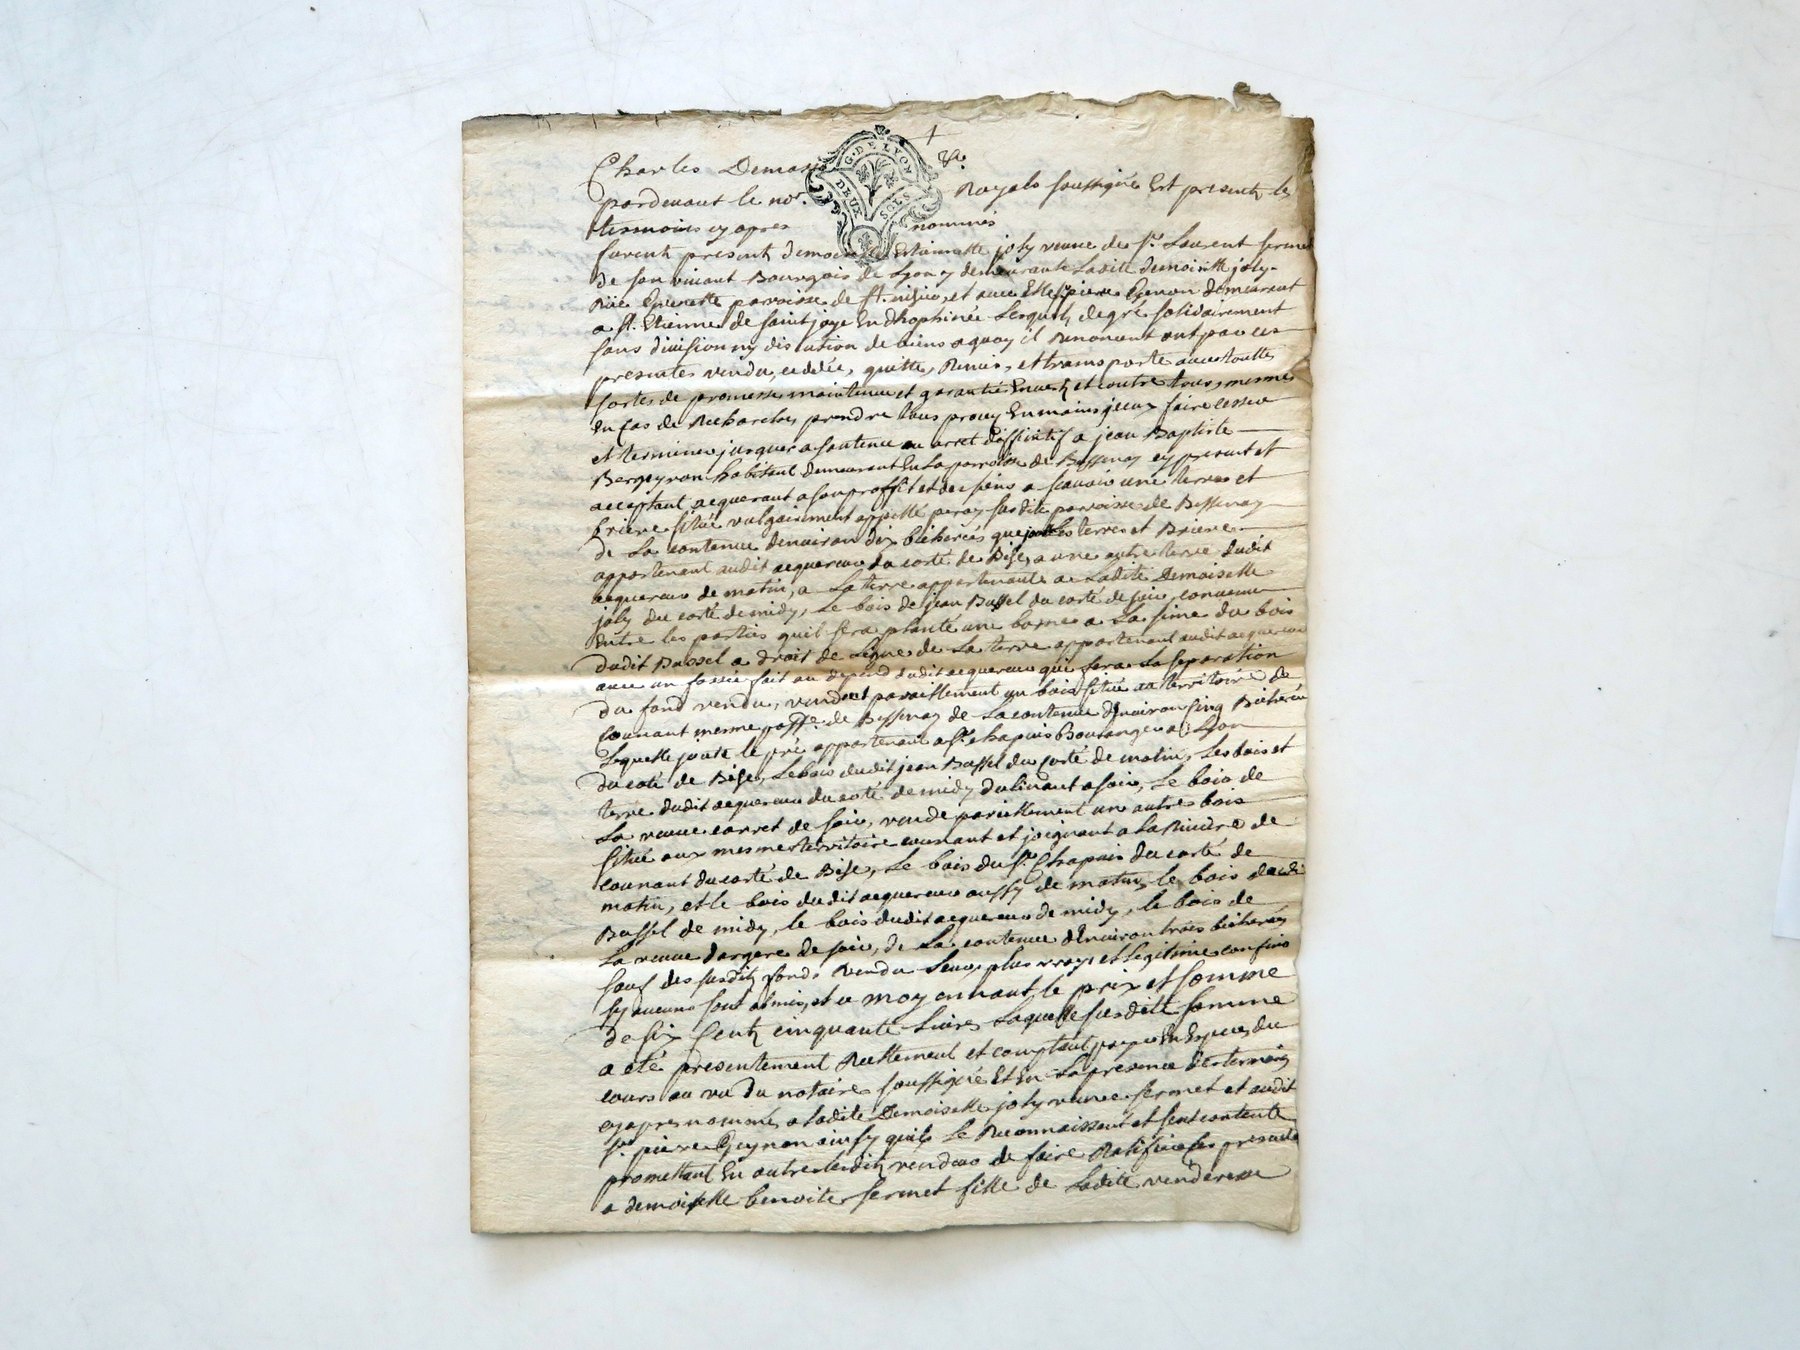 Charles Demas
G. DE LYON
DEUX SOLS
pardevant le no.^re Royale soussigné Est present les
tesmoins cy apres nommés
furent present demoiselle Estiennette joly veuve de s.^r Laurent fermet
de son vivant Bourgois de Lyon y demeurante Ladite demoiselle joly
Rüe parroisse de st. nisier, et avec Elle s.^r piere demeurant
a st. Etienne de saint joye En dhophinée Lesquels degré solidairement
sans division ny discution de biens a quoy il Renoncent ont par ces
presentes vendu, ceddée, quitte, Remis, et transporte avec toutte
sortes de promesse maintenue et garantie Envers et contre tous, mesme
En cas de Recharches prendre tous proces En mains jceux faire cesser
et terminer jusques a santence ou arret deffinitif a jean Baptiste
Bergeyron habitant demeurant En La parroisse de Bessenay cy present et
acceptant acquerant a son proffit et des siens a scavoir une terre et
briere situé vulgairement appellé susdite paroisse de Bessenay
de La contenue denviron dix bicherées que joint les terres et Briere
appartenant audit acquereur du corté de Bise, a une autre terre dudit
acquereur de matin, a La terre appartenante a Ladite Demoiselle
joly du corté de midy, Le bois de jean Bussel du corté de soir, convenu
Entre les parties quil sera planté une borne a La sime du bois
dudit Bussel a droit de Ligne de La terre appartenant audit acquereur
avec un fossée fait au depend dudit acquereur qui fera La separation
du fond vendu, vendent pareillement un bois situé au territoire de
Counant mesme poss.^e de Bessenay de La contenue denviron sinq Bicherée
Lequelle joint le pré appartenant a s.^r chapuis Boulanger a Lyon
du coté de Bise, Le bois dudit jean Bussel du corté de matin, Les bois et
terre dudit acquereur du coté de midy declinant a soir, Le bois de
La veuve carret de soir, vende pareillement un autre bois
situé aux mesme territoire counant et joignant a La Riviere de
Counant du corté de Bise, Le bois du s.^r Chapuis du corté de
matin, et le bois dudit acquereur aussy de matin, le bois dudit
Bussel de midy, le bois dudit acquereur de midy, le bois de
La veuve dargere de soir, de La contenue denviron trois bicherées
sauf des susdits fonds vendu Leurs plus vrays et Legitime confins
sy aucuns sont obmis, et ce moyennant le prix et somme
de six cents cinquante Livres Laquelle susditte somme
a eté presentement Reellement et comptant payé En Espece du
cours au vu du notaire soussigné Et En La presence des temoins
cy apres nommés, a Ladite Demoiselle joly veuve fermet et audit
s.^r piere ainsy quils Le Reconnaissent et sent contente
promettant En outre lesdits vendeurs de faire Ratifier Les presente
a demoiselle benoite fermet fille de Ladite venderesse